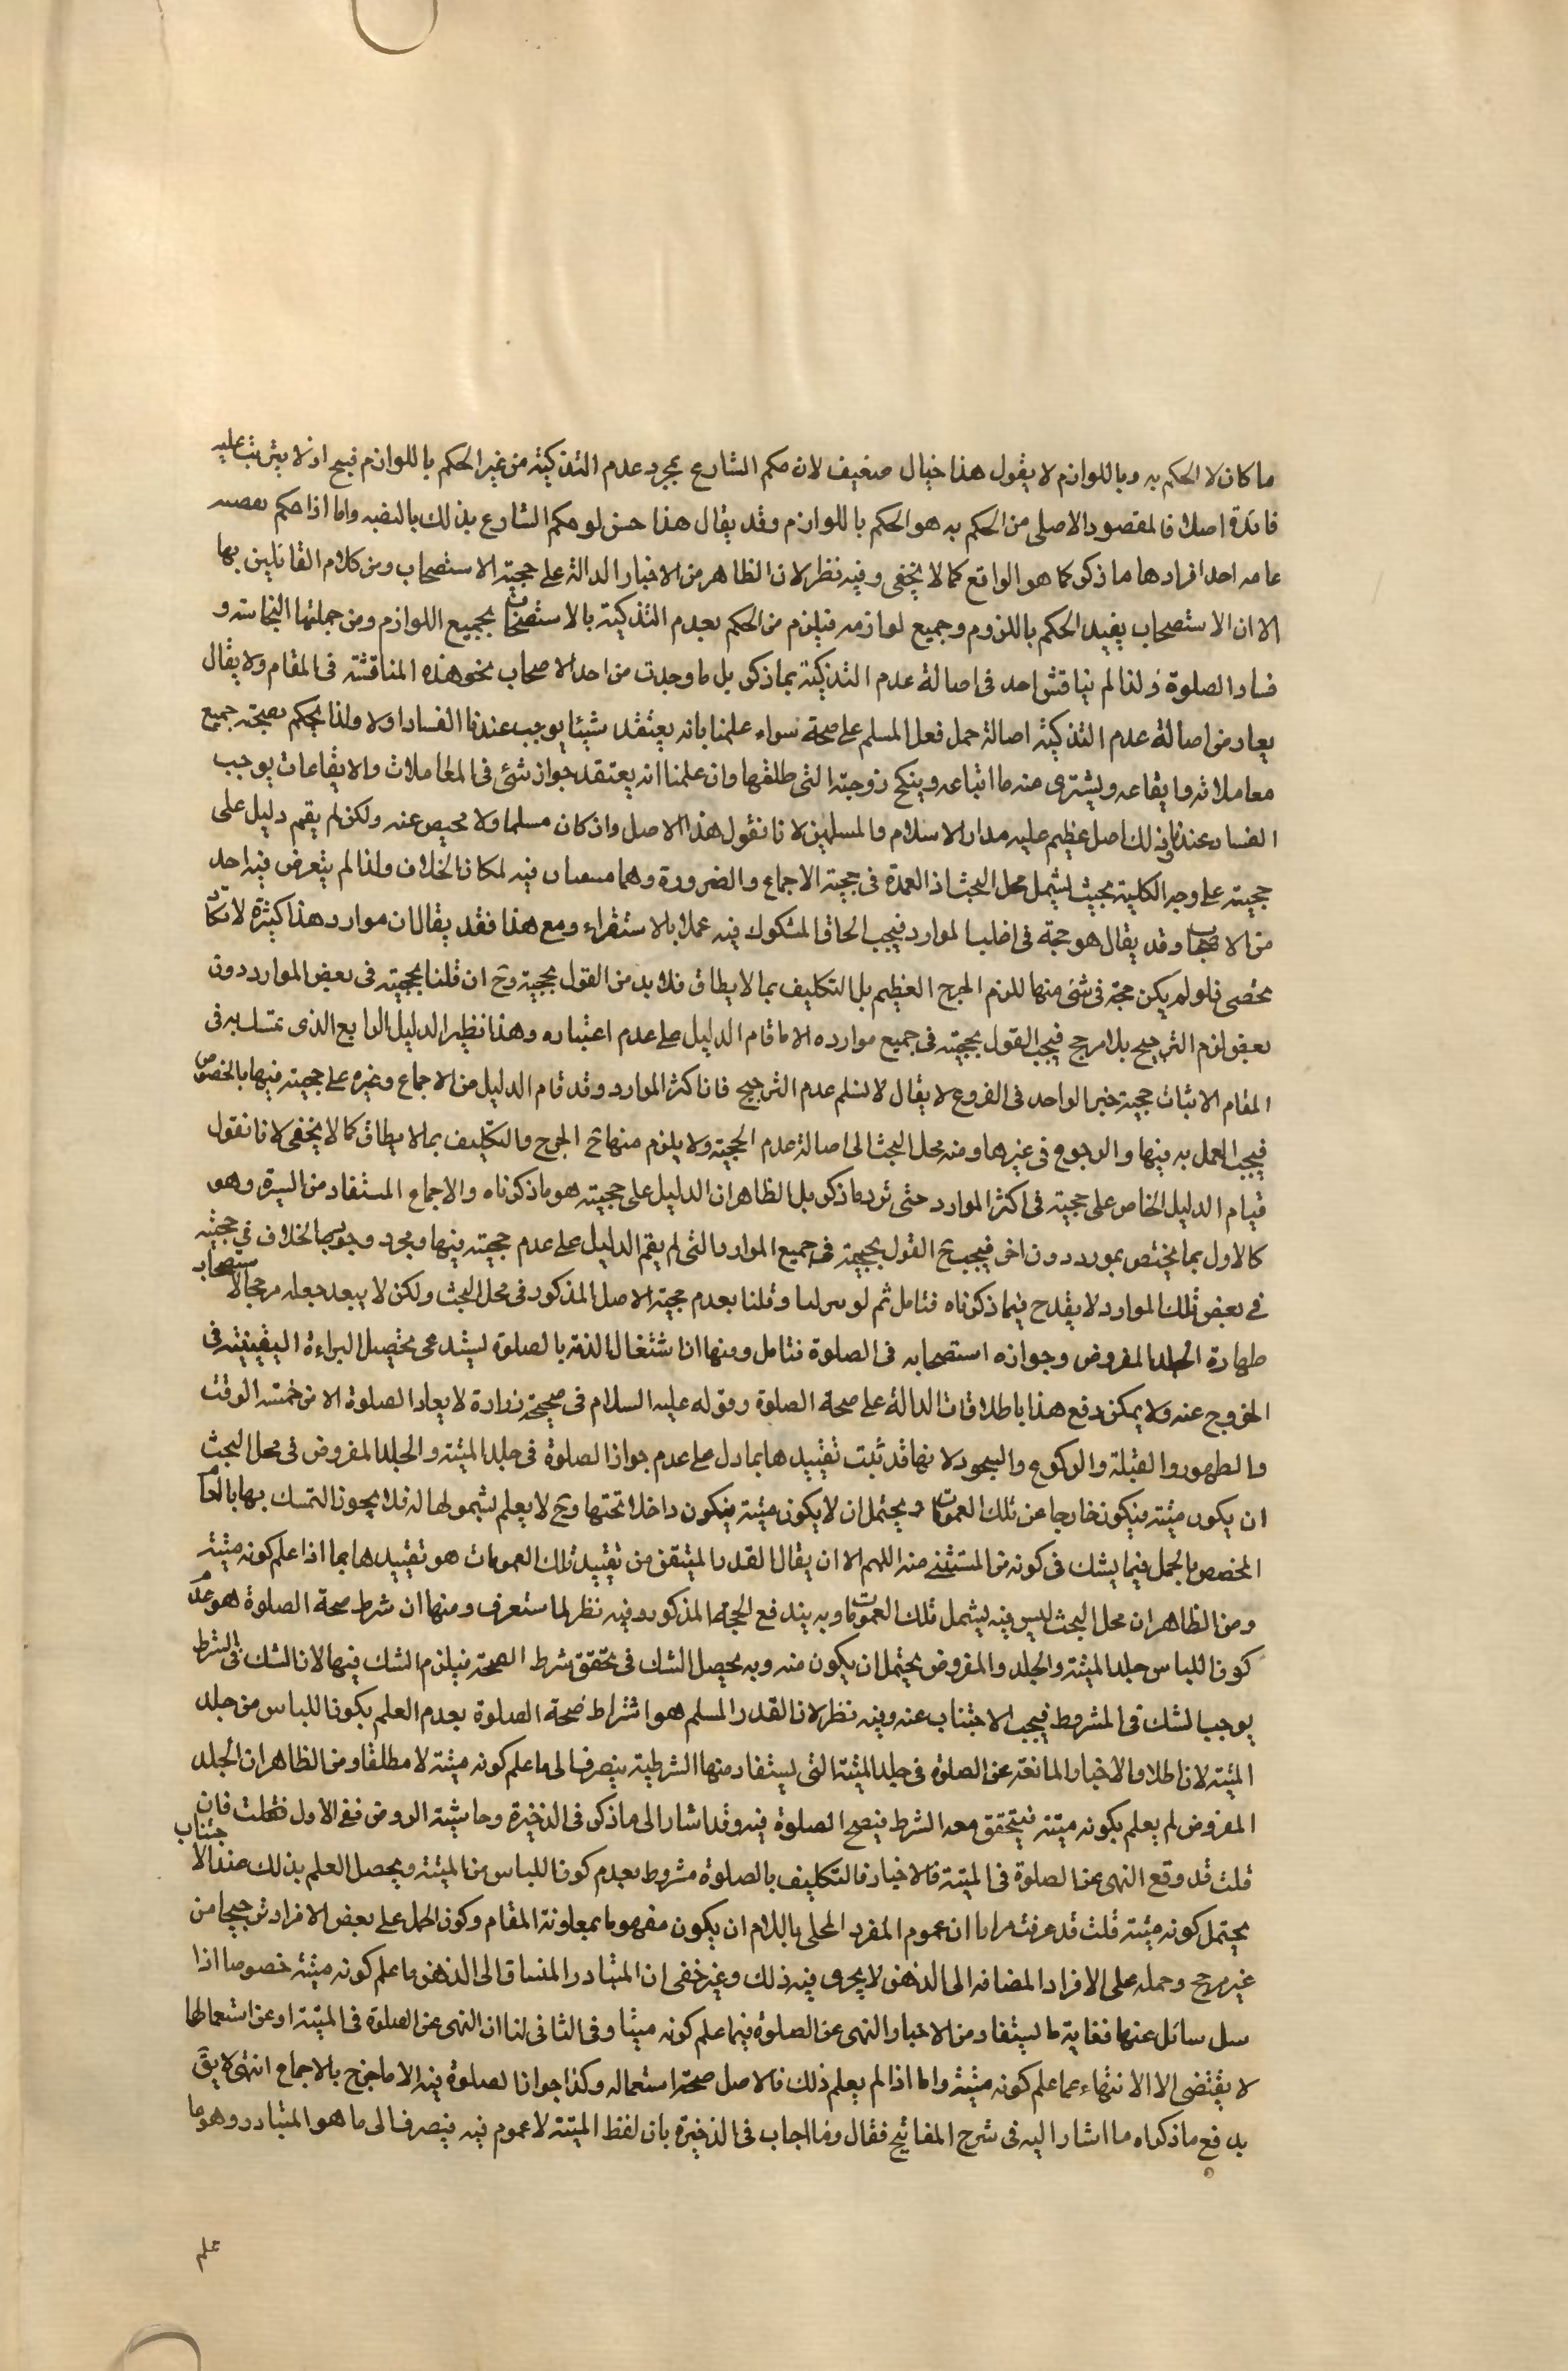 ما كان لا الحكم به وباللوازم لا يقول هذا خيال ضعيف لان حكم الشارع بمجرد عدم التذكية من غير الحكم باللوازم قبيح اذ لا يترتب عليه
فائدة اصلا فالمقصود الاصلى من الحكم به هو الحكم باللوازم وقد يقال هذا حسن لو حكم الشارع بذلك بالنفيه واما اذا حكم
عامه احد افرادها ما ذكر كما هو الواقع كما لا يخفى وفيه نظر لان الظاهر من الاخبار الدالة على حجية الاستصحاب ومن كلام القائلين بها
الا ان الاستصحاب يفيد الحكم بالملزوم وجميع لوازمه فيلزم من الحكم بعدم التذكية بالاستصحاب بجميع اللوازم ومن جملتها النجاسة و
فساد الصلوة ولذا لم يناقش احد فى اصالة عدم التذكية بما ذكر بل ما وجدت من احد الاصحاب نحو هذه المناقشة فى المقام ولا يقال
يعارض اصالة عدم التذكية اصالة حمل فعل المسلم على صحة سواء علمنا بانه يعتقد شيئا يوجب عندنا الفساد اولا ولذا يحكم بصحة جميع
معاملاته وايقاعه ويشترى منه ما ابتاعه وينكح زوجته التى طلقها وان علمنا انه يعتقد جواز شئ فى المعاملات والايقاعات يوجب
الفساد عندنا وذلك اصل عظيم عليه مدار الاسلام والمسلمين لانا نقول هذا الاصل وان كان مسلما ولا محيص عنه ولكن لم يقم دليل على
حجيته على وجه الكلية بحيث يشمل محل البحث اذ العمدة فى حجيته الاجماع والضرورة وهما فيه لمكان الخلاف ولذا لم يتعرض فيه احد
من الاصحاب وقد يقال هو حجة فى اغلب الموارد فيجب الحاق المشكوك فيه عملا بالاستقراء ومع هذا فقد يقال ان موارد هذا كثيرة لا تكاد
تحصى فلو لم يكن حجة فى شئ منها للزم الحرج العظيم بل التكليف بما لا يطاق فلا بد من القول بحجيته وح ان قلنا بحجيته فى بعض الموارد دون
بعض لزم الترجيح بلا مرجح فيجب القول بحجيته فى جميع موارده الا ما قام الدليل على عدم اعتباره وهذا نظير الدليل الرابع الذى تمسك به فى
المقام الاثبات حجية خبر الواحد فى الفروع لا يقال لا نسلم عدم الترجيح فان اكثر الموارد وقد قام الدليل من الاجماع وغيره على حجيته فيها بالخصوص
فيجب العمل به فيها والرجوع فى غيرها ومنه محل البحث الى اصالة عدم الحجية ولا يلزم منها ح الحرج والتكليف بما لا يطاق كما لا يخفى لانا نقول
قيام الدليل الخاص على حجيته فى اكثر الموارد حتى ترد ما ذكر بل الظاهر ان الدليل على حجيته هو ما ذكرناه والاجماع المستفاد من السيرة وهو
كالاول بما يختص بمورد دون اخر فيجب ح القول بحجيته فى جميع الموارد التى لم يقم الدليل على عدم حجيته فيها ومجرد وجود الخلاف فى حجيته
فى بعض تلك الموارد لا يقدح فيما ذكرناه فتامل ثم لو وقلنا بعدم حجية الاصل المذكور فى محل البحث ولكن لا يبعد جعله مرجحا لاستصحاب
طهارة الجلد المفروض وجوازه استصحابه فى الصلوة فتامل ومنها ان اشتغال الذمة بالصلوة يستدعى تحصيل البراءة اليقينية فى
الخروج عنه ولا يمكن دفع هذا باطلاقات الدالة على صحة الصلوة وقوله عليه السلام فى صحيحة زرارة لا يعاد الصلوة الا من خمسة الوقت
والطهور والقبلة والركوع والسجود لانها قد ثبت تقييدها بما دل على عدم جواز الصلوة فى جلد الميتة والجلد المفروض فى محل البحث
ان يكون ميتة فيكون خارجا عن تلك العمومات ويحتمل ان لا يكون ميتة فيكون داخلا تحتها وح لا يعلم شمولها له فلا يجوز التمسك بها بالعام
المخصص بالمجمل فيما يشك فى كونه من المستثنى منه اللهم الا ان يقال القدر المتيقن من تقييد تلك العمومات هو تقييدها بما اذا علم كونه ميتة
ومن الظاهر ان محل البحث ليس فيه يشمل تلك العمومات وبه يندفع الحجة المذكورة وفيه نظر لما ستعرف ومنها ان شرط صحة الصلوة هو عدم
كون اللباس جلد الميتة والجلد والمفروض يحتمل ان يكون منه وبه يحصل الشك فى تحقق شرط الصحة فيلزم الشك فيها لان الشك فى الشرط
يوجب الشك فى المشروط فيجب الاجتناب عنه وفيه نظر لان القدر المسلم هو اشتراط صحة الصلوة بعدم العلم بكون اللباس من جلد
الميتة لان اطلاق الاخبار المانعة عن الصلوة فى جلد الميتة التى يستفاد منها الشرطية ينصرف الى ما علم كونه ميتة لا مطلقا ومن الظاهر ان الجلد
المفروض لم يعلم بكونه ميتة فيتحقق معه الشرط فيصح الصلوة فيه وقد اشار الى ما ذكر فى الذخيرة وحاشية الروض ففى الاول فقلت فان
قلت قد وقع النهى عن الصلوة فى الميتة فالاخبار فالتكليف بالصلوة مشروط بعدم كون اللباس من الميتة ويحصل العلم بذلك عند الاجتناب
يحتمل كونه ميتة قلت قد عرفت مرارا ان عموم المفرد المحلى باللام ان يكون مفهوما بمعاونة المقام وكون الحمل على بعض الافراد ترجيحا من
غير مرجح وحمله على الافراد المضافه الى الذهن لا يجرى فيه ذلك وغير خفى ان المتبادر المنساق الى الذهن ما علم كونه ميتة خصوصا اذا
سل سائل عنها فغاية ما يستفاد من الاخبار النهى عن الصلوة فيما علم كونه ميتا وفى الثانى لنا ان النهى عن الصلوة فى الميتة او عن استعمالها
لا يقتضى الا الانتهاء عما علم كونه ميتة واما اذا لم يعلم ذلك فالاصل صحة استعماله وكذا جواز الصلوة فيه الا ما خرج بالاجماع انتهى لا يق
يدفع ما ذكراه ما اشار اليه فى شرح المفاتيح فقال وما اجاب فى الذخيرة بان لفظ الميتة لا عموم فيه فينصرف الى ما هو المتبادر وهو ما
علم